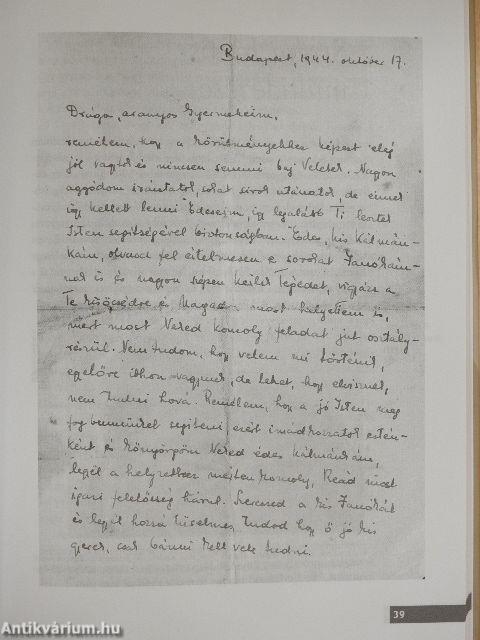 Budapest, 1944. október 17.
Drága, aranyos Gyermekeim,
remélem, hogy a körülményekhez képest elég
jól vagytok és nincsen semmi baj Veletek. Nagyon
aggódom irántatok, sokat sírok utánatok, de ennek
így kellett lenni Édeseim, így legalább Ti lesztek
Isten segítségével biztonságban. Édes, kis Kálmán-
kám, olvasd fel értelmesen e sorokat Janókám-
nak is és nagyon szépen kérlek Téged, vigyázz a
Te kisöcsédre és Magadra most helyettem is,
mert most Neked komoly feladat jut osztály-
részül. Nem tudom, hogy velem mi történik,
egyelőre itthon vagyunk, de lehet, hogy elvisznek,
nem tudni hová. Remélem, hogy a jó Isten meg
fog bennünket segíteni ezért imádkozzatok estén-
ként és könyörgöm Neked édes Kálmánkám,
legyél a helyzethez mérten komoly, Reád most
igazi felelősség hárul. Szeressed a kis Janókát
és legyél hozzá türelmes, tudod hogy ő jó kis
gyerek, csak bánni kell vele tudni.
39
Antikvárium.hu